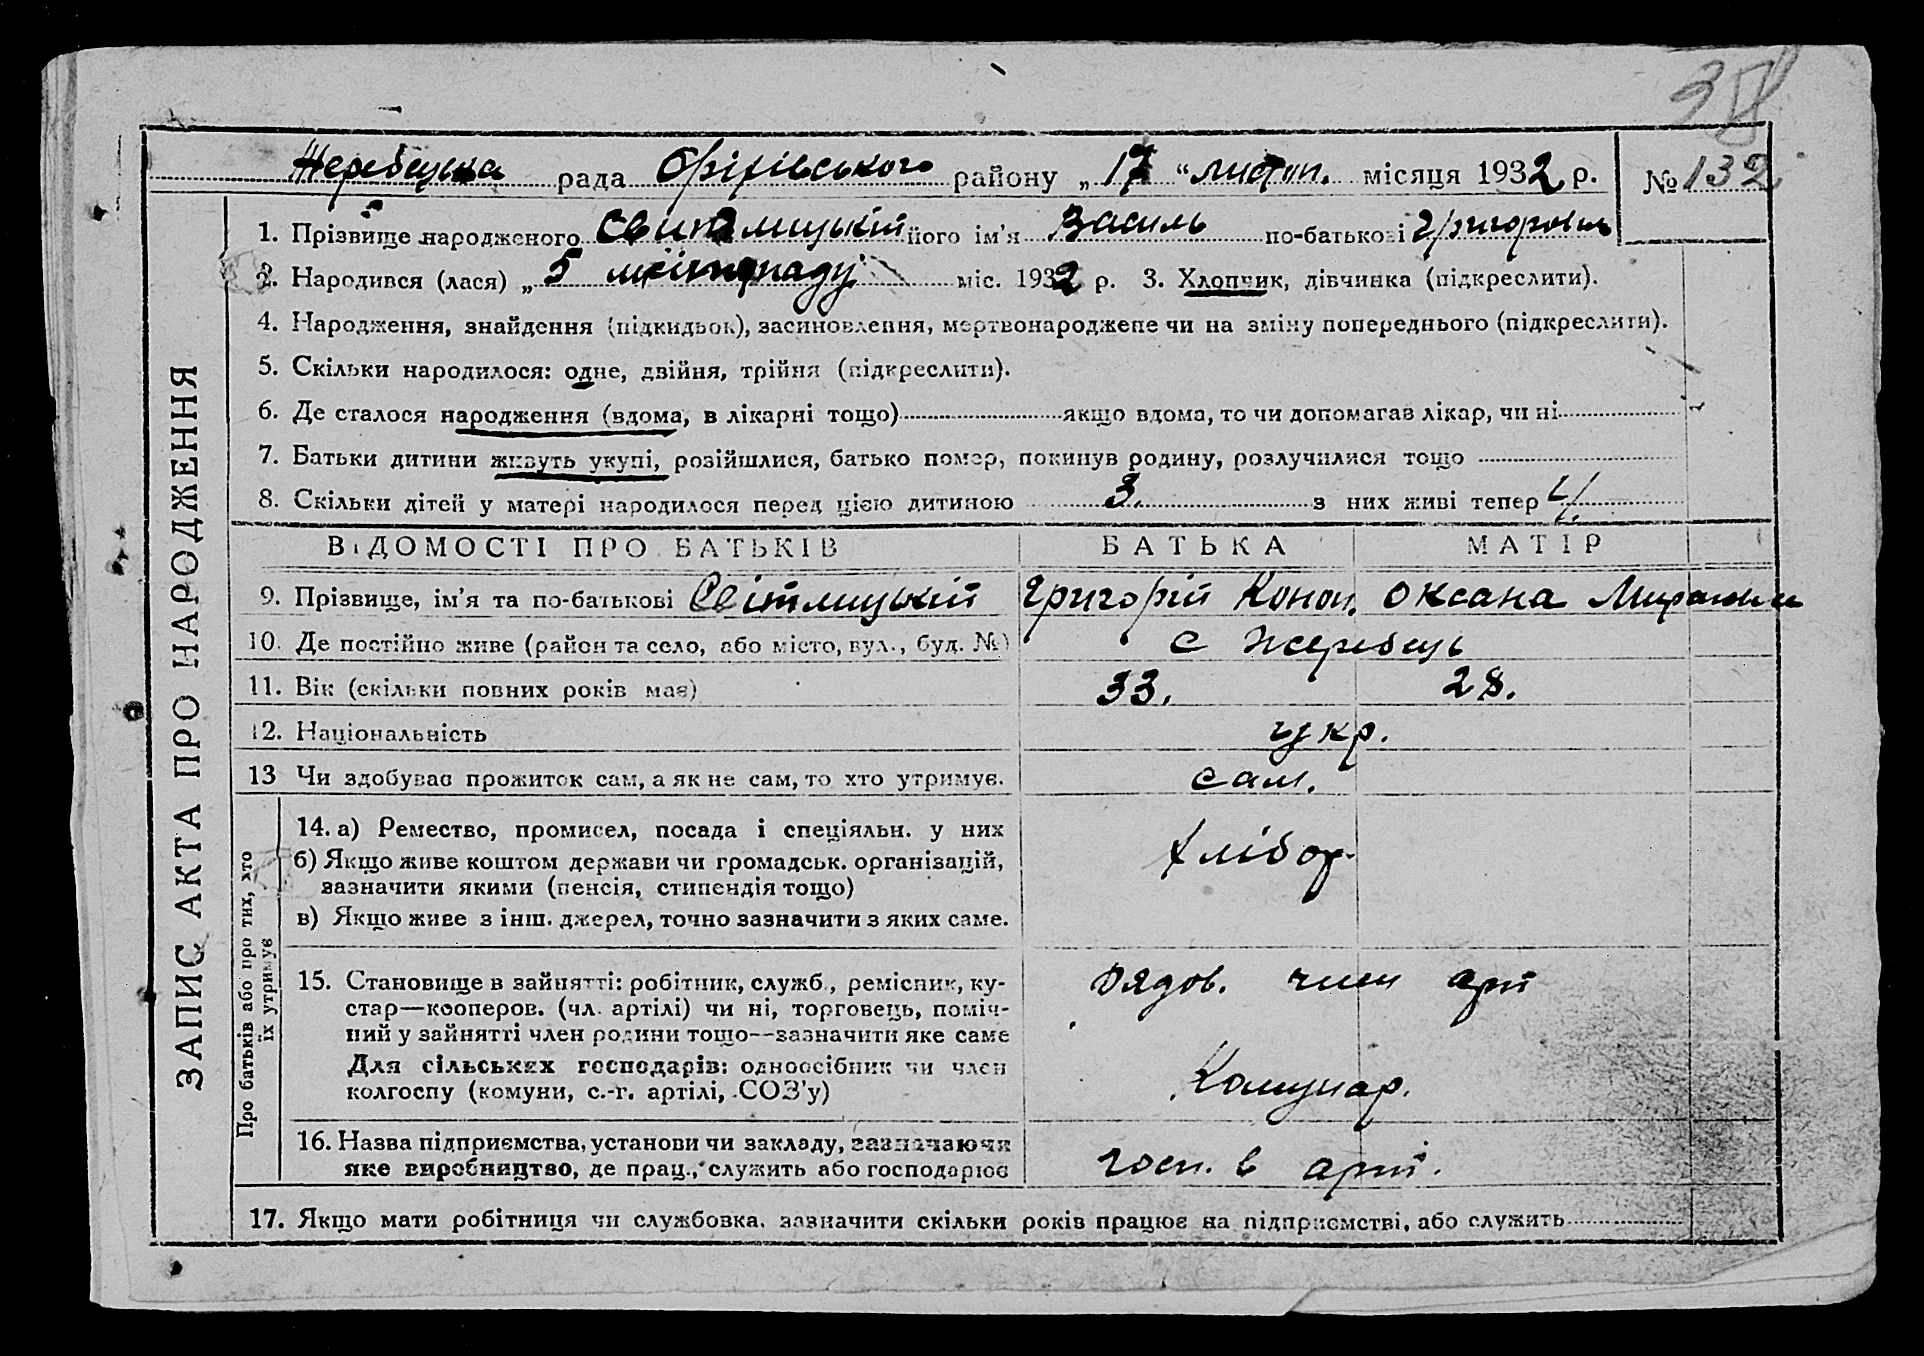 38
Жеребецька рада Оріхівського району „ 17 “ листоп. місяця 1932 р. № 132
ЗАПИС АКТА ПРО НАРОДЖЕННЯ
1. Прізвище народженого Світлицький його ім’я Василь по-батькові Григорович
2. Народився (лася) „ 5 листопаду міс. 1932 р. 3. Хлопчик, дівчинка (підкреслити).
4. Народження, знайдення (підкидьок), засиновлення, мертвонароджене чи на зміну попереднього (підкреслити).
5. Скільки народилося: одне, двійня, трійня (підкреслити).
6. Де сталося народження (вдома, в лікарні тощо) якщо вдома, то чи допомагав лікар, чи ні
7. Батьки дитини живуть укупі, розійшлися, батько помер, покинув родину, розлучилися тощо
8. Скільки дітей у матері народилося перед цією дитиною 3. з них живі тепер 4.
ВІДОМОСТІ ПРО БАТЬКІВ БАТЬКА МАТІР
9. Прізвище, ім’я та по-батькові Світлицькій Григорій Конон. Оксана
10. Де постійно живе (район та село, або місто, вул., буд. №) с Жеребець
11. Вік (скільки повних років має) 33. 28.
12. Національність укр.
13 Чи здобуває прожиток сам, а як не сам, то хто утримує. сам.
Про батьків або про тих, хто їх утримує
14. а) Ремество, промисел, посада і спеціяльн. у них
б) Якщо живе коштом держави чи громадськ. організацій,
зазначити якими (пенсія, стипендія тощо)
хлібор.
в) Якщо живе з інш. джерел, точно зазначити з яких саме.
15. Становище в зайнятті: робітник, служб., ремісник, ку-
стар—кооперов. (чл. артілі) чи ні, торговець, поміч-
ний у зайнятті член родини тощо—зазначити яке саме
рядов. член арт
Для сільських господарів: одноосібник чи член
колгоспу (комуни, с.-г. артілі, СОЗ’у)
Комунар.
16. Назва підприємства, установи чи закладу, зазначаючи
яке виробництво, де прац., служить або господарює
госп. в арт.
17. Якщо мати робітниця чи службовка, зазначити скільки років працює на підприємстві, або служить